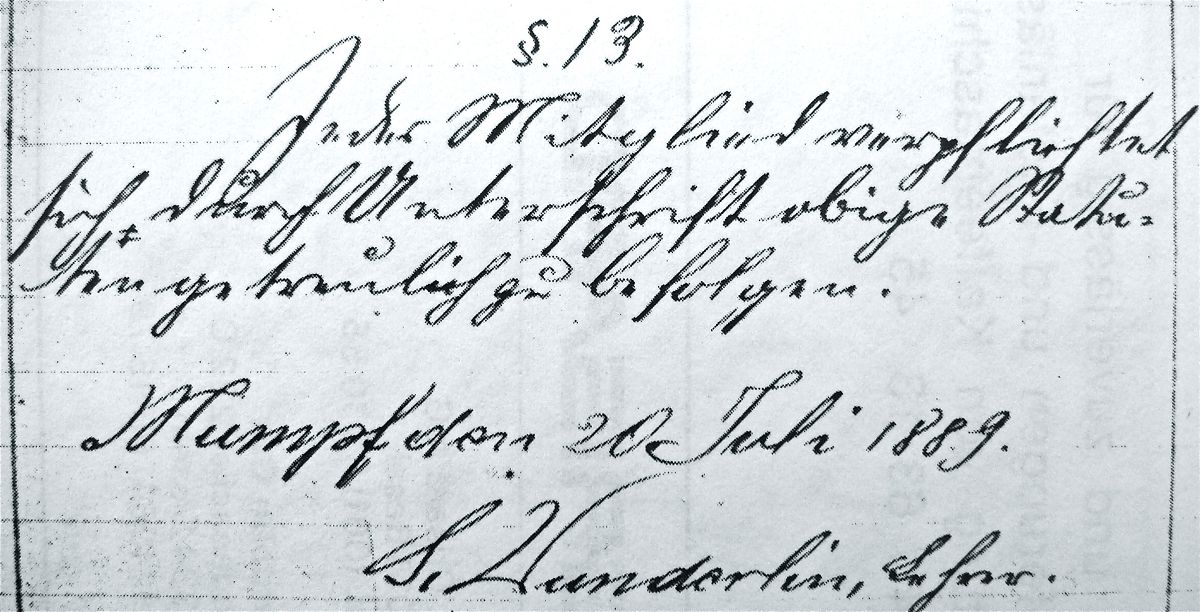 §. 13.
Jedes Mitglied verpflichtet
sich, durch Unterschrift obige Statu-
ten getreulich zu befolgen.
Mumpf den 20 Juli 1889.
Wunderlin, Lehrer.